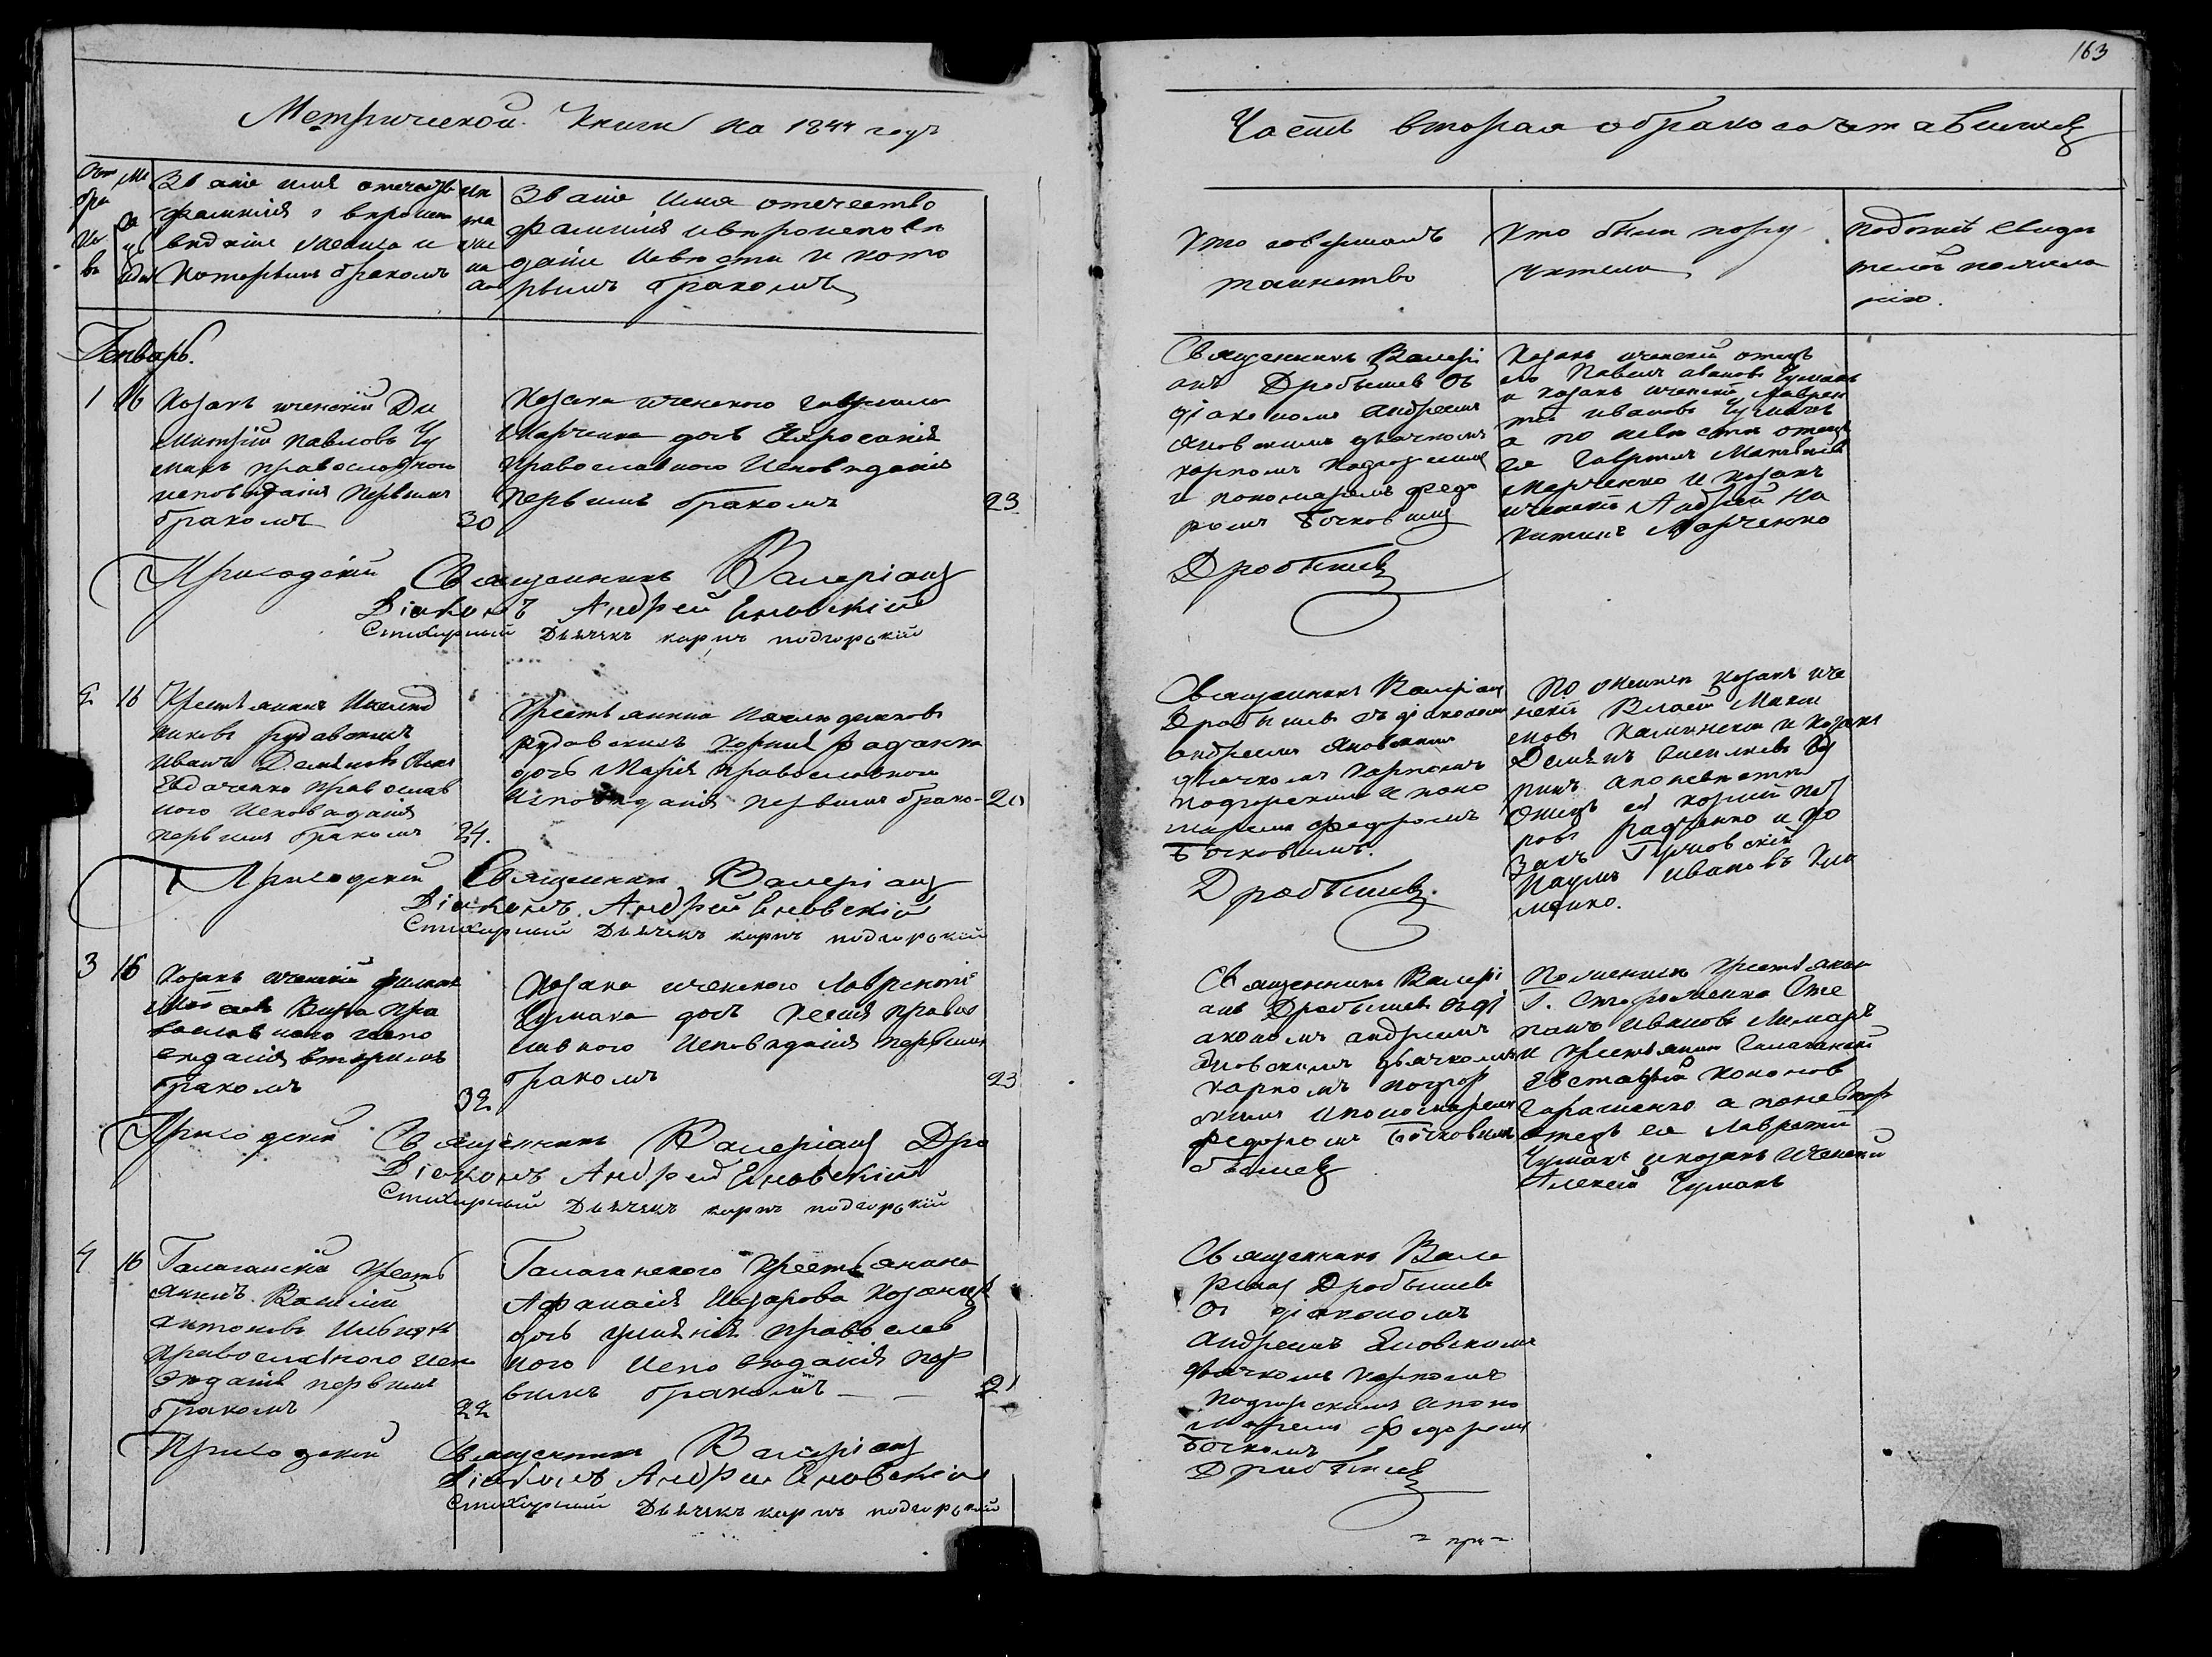 163
Метрической Книги на 1844 годъ
Часть вторая о бракосочетавшихся
Счет
бра
ко
въ
Ме
ся
цъ
и дни
Званіе имя отечество
фамилія и вѣроиспо
вѣданіе жениха и
которымъ бракомъ
Званіе имя отечество
фамилія и вѣроисповѣ
даніе невѣсты и кото
рымъ бракомъ
Кто совершалъ
таинство
Кто были пору
чители
Подпись свиде
телей по жела
нію.
Генварь.
1 16
Козакъ иченскій Ди
митрій Павловъ Чу
макъ православного
исповѣданія первымъ
бракомъ 30
Козака иченского Гаврила
Марченка дочь
православного исповѣданія
первымъ бракомъ 23
Священникъ Валері
анъ Дробышевъ съ
діакономъ Андреемъ
Яновскимъ дьячкомъ
Карпомъ Подгорскимъ
и пономаремъ Федо
ромъ Бочковскимъ
Козакъ иченскій отецъ
его Павелъ Ивановъ Чумакъ
и козакъ иченскій Лаврен
тій Ивановъ Чумакъ
а по невѣсти отецъ
ея Гаврилъ
Марченко и козакъ
иченскій Андрей Ни
китинъ Марченко
Приходскій Священникъ Валеріанъ Дробышевъ
Діаконъ Андрей Еновскій
Стихарный Дьячекъ карпъ подгорскій
2 16
Крестьянинъ
Рудавскихъ
Иванъ Демяновъ
Евдаченко православ
ного исповѣданія
первымъ бракомъ 24.
Крестьянина
Рудавскихъ Корнія Радченка
дочь Марія православного
исповѣданія первымъ брако- 20
Священникъ Валеріанъ
Дробышевъ съ діакономъ
Андреемъ Яновскимъ
дьячкомъ Карпомъ
Подгорскимъ и поно
маремъ Федоромъ
Бочковскимъ.
По женихи козакъ иче
нскій Власій Макси
мовъ Калинскій и козакъ
Демянъ Василіевъ
а по невѣсти
отецъ ея Корній
Радченко и ко
закъ
Наумъ Ивановъ Кли
менко.
Приходскій Священникъ Валеріанъ Дробышевъ.
Діаконъ Андрей Еновскій
Стихарный Дьячекъ карпъ подгорскій
3 16
Козакъ иченскій
пра
вославного испо
вѣданія вторымъ
бракомъ 32
Козака иченского Лаврентія
Чумака дочь Ксенія право
славного исповѣданія первымъ
бракомъ 23
Священникъ Валері
анъ Дробышевъ съ ді
акономъ Андреемъ
Яновскимъ дьячкомъ
Карпомъ Подгор
скимъ и пономаремъ
Федоромъ Бочковскимъ
По женихи крестьянинъ
Сте
панъ Ивановъ Лимаръ
и крестьянинъ Галаганскій
Евстафій Кононовъ
Гарашенко а по невѣсти
отецъ ея Лаврентій
Чумакъ и козакъ иченскій
Алексѣй Чумакъ
Приходскій Священникъ Валеріанъ Дро
бышевъ
Діаконъ Андрей Еновскій
Стихарный Дьячекъ карпъ подгорскій
4 16
Галаганскій кресть
янинъ Василій
Антоновъ
православного испо
вѣданія первымъ
бракомъ 22
Галаганского крестьянина
Афанасія Назарова
дочь православ
ного исповѣданія пер
вымъ бракомъ — — 21
Священникъ Вале
ріанъ Дробышевъ
съ діакономъ
Андреемъ Еновскимъ
дьячкомъ Карпомъ
Подгорскимъ и поно
маремъ Федоромъ
Приходскій Священникъ Валеріанъ Дробышевъ
Діаконъ Андрей Еновскій
Стихарный Дьячекъ карпъ подгорскій
= при =